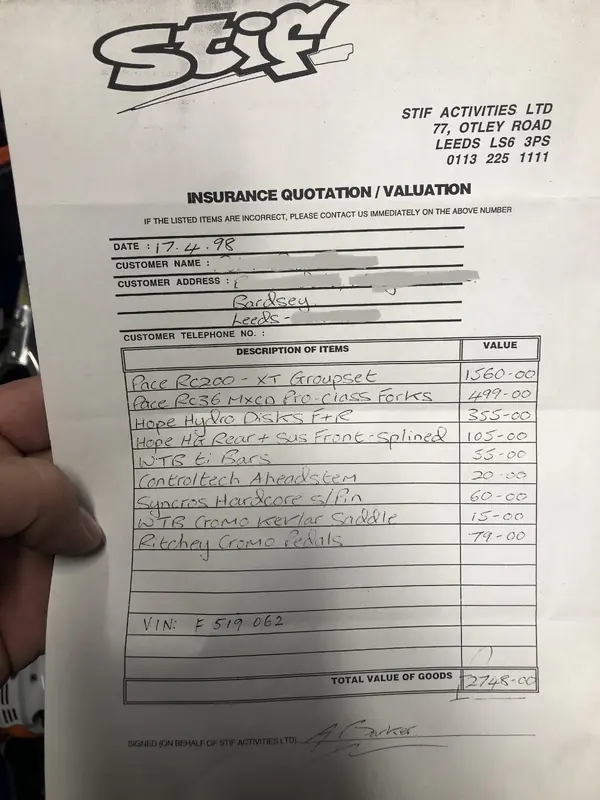 Stif
STIF ACTIVITIES LTD
77, OTLEY ROAD
LEEDS LS6 3PS
0113 225 1111
INSURANCE QUOTATION / VALUATION
IF THE LISTED ITEMS ARE INCORRECT, PLEASE CONTACT US IMMEDIATELY ON THE ABOVE NUMBER
DATE : 17.4.98
CUSTOMER NAME :
CUSTOMER ADDRESS :
Bardsey
Leeds -
CUSTOMER TELEPHONE NO. :
DESCRIPTION OF ITEMS VALUE
Pace RC200 - XT Groupset 1560-00
Pace RC36 MXCD Pro-Class Forks 499-00
Hope Hydro Disks F+R 355-00
Hope HG Rear + Sus Front-Splined 105-00
WTB ti Bars 55-00
Controltech Aheadstem 20-00
Syncros Hardcore s/Pin 60-00
WTB Cromo Kevlar Saddle 15-00
Ritchey Cromo Pedals 79-00
VIN: F 519 062
TOTAL VALUE OF GOODS 2748-00
SIGNED (ON BEHALF OF STIF ACTIVITIES LTD) A Barker